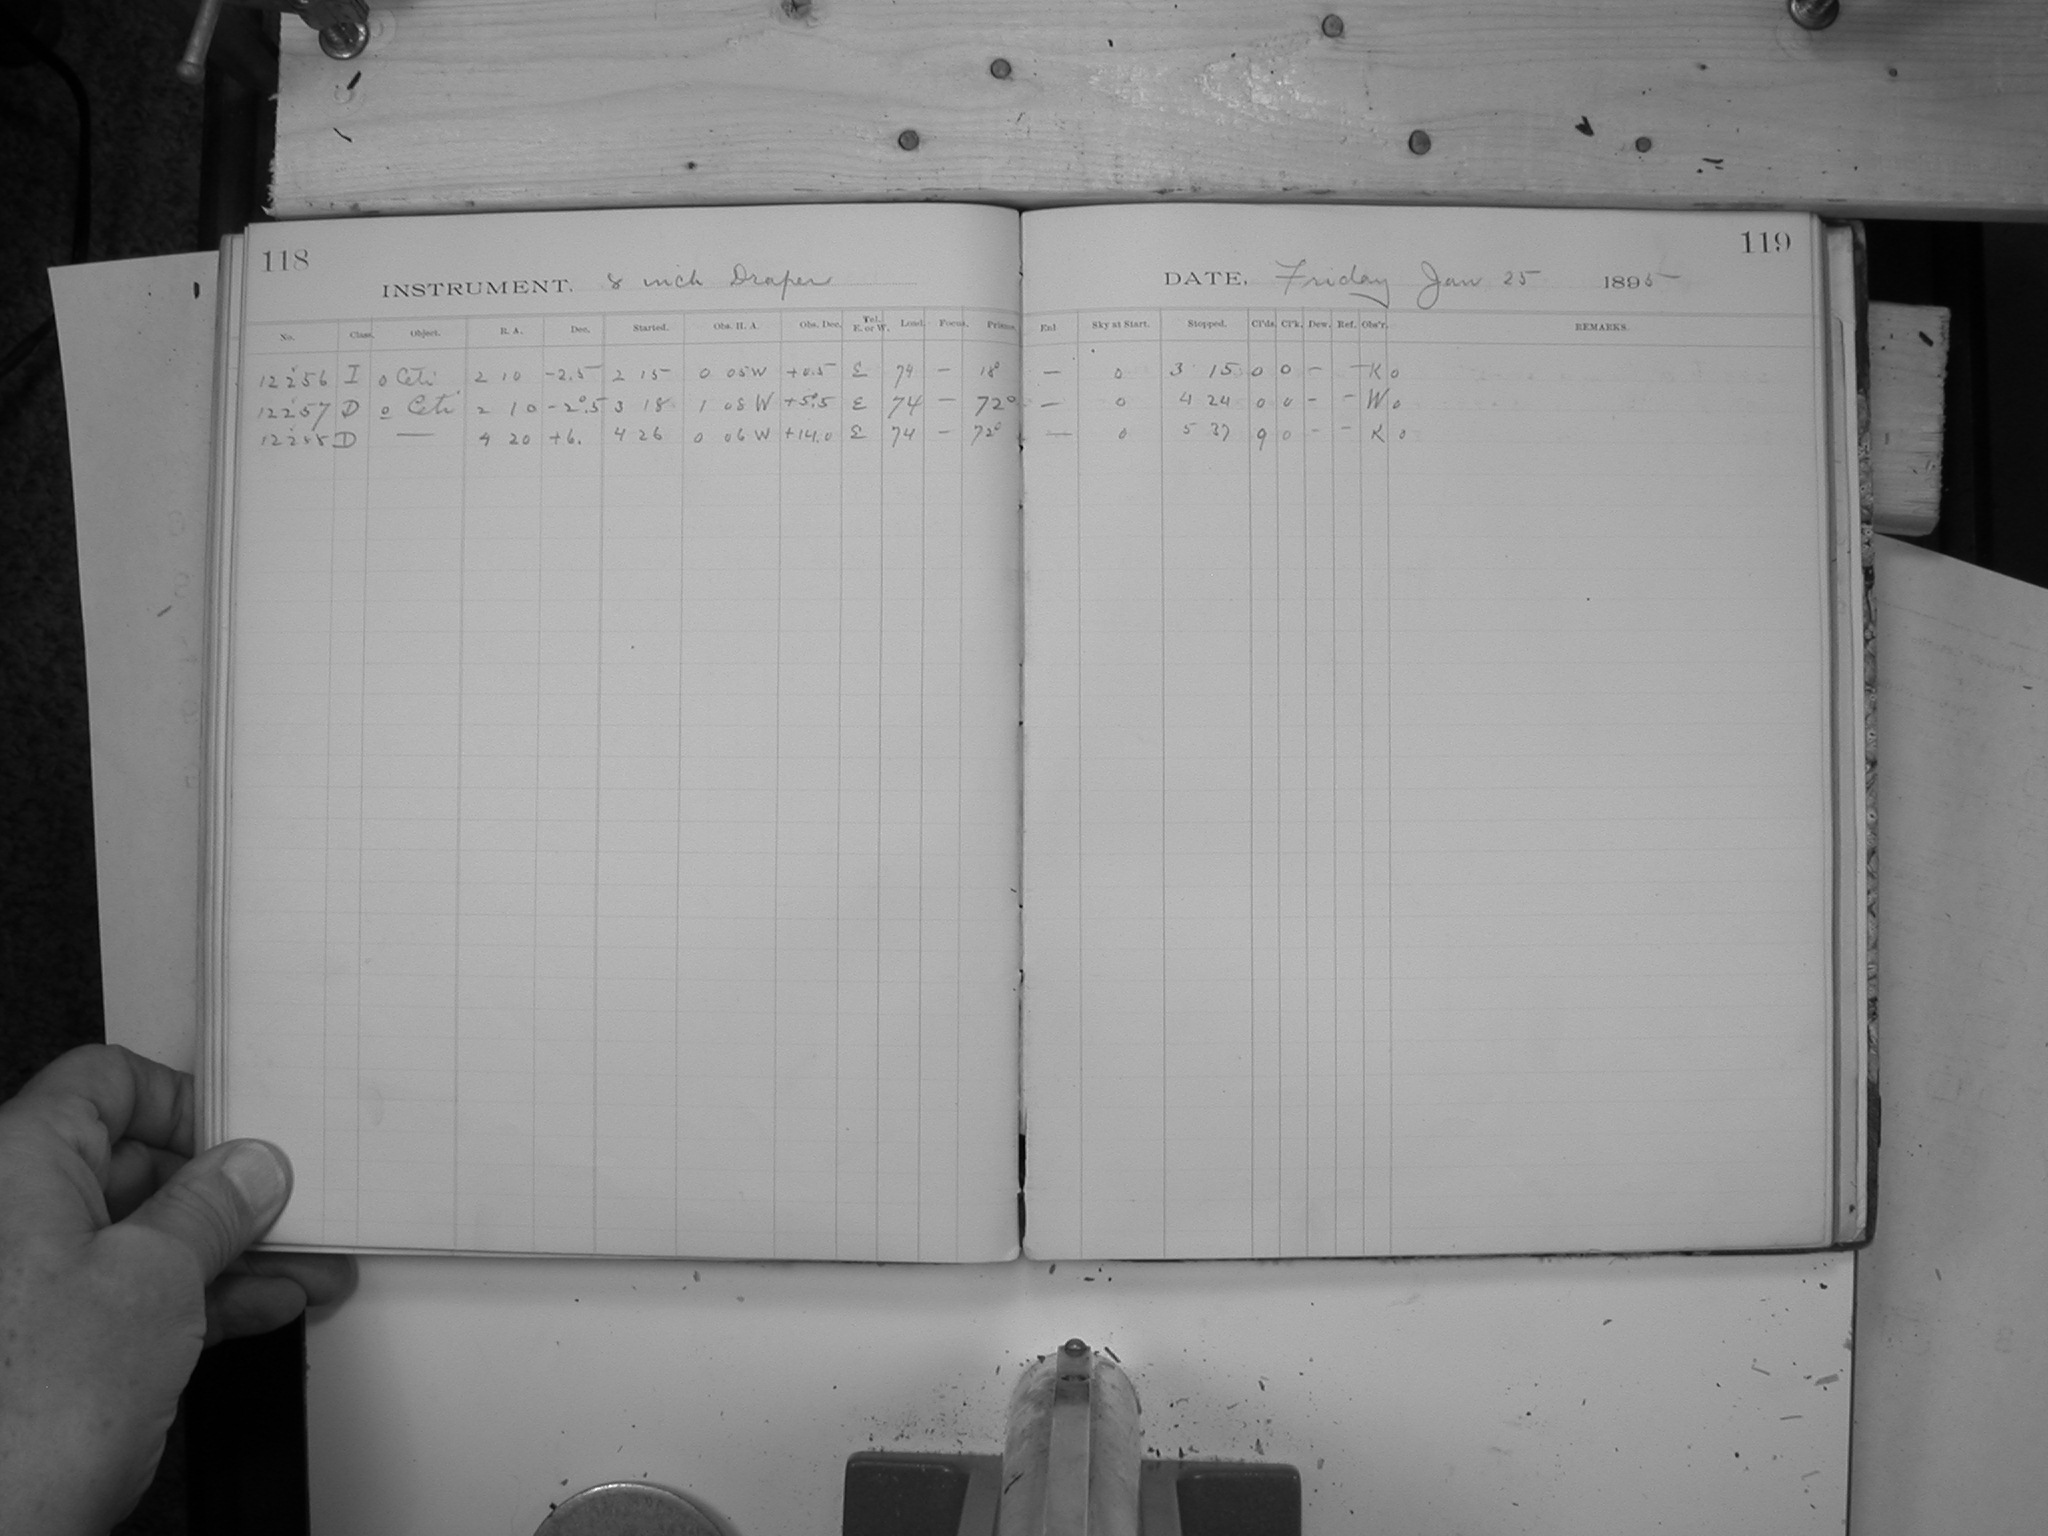 118
INSTRUMENT. 8 inch Draper
No. Class. Object. R. A. Dec. Started. Obs. H. A. Obs. Dec. Tel. E. or W. Load. Focus. Prisms.
12256 I o Ceti 2 10 -2.5 2 15 0 05 W +0.5 E 74 — 18°
12257 D o Ceti 2 10 -2°.5 3 18 1 08 W +5°.5 E 74 — 72°
12258 D — 4 20 +6. 4 26 0 06 W +14.0 E 74 — 72°
119
DATE. Friday Jan 25 1895
Enl Sky at Start. Stopped. Cl'ds. Cl'k. Dew. Ref. Obs'r. REMARKS.
— 0 3 15 0 0 — — K 0
— 0 4 24 0 0 — — W 0
— 0 5 37 9 0 — — K 0